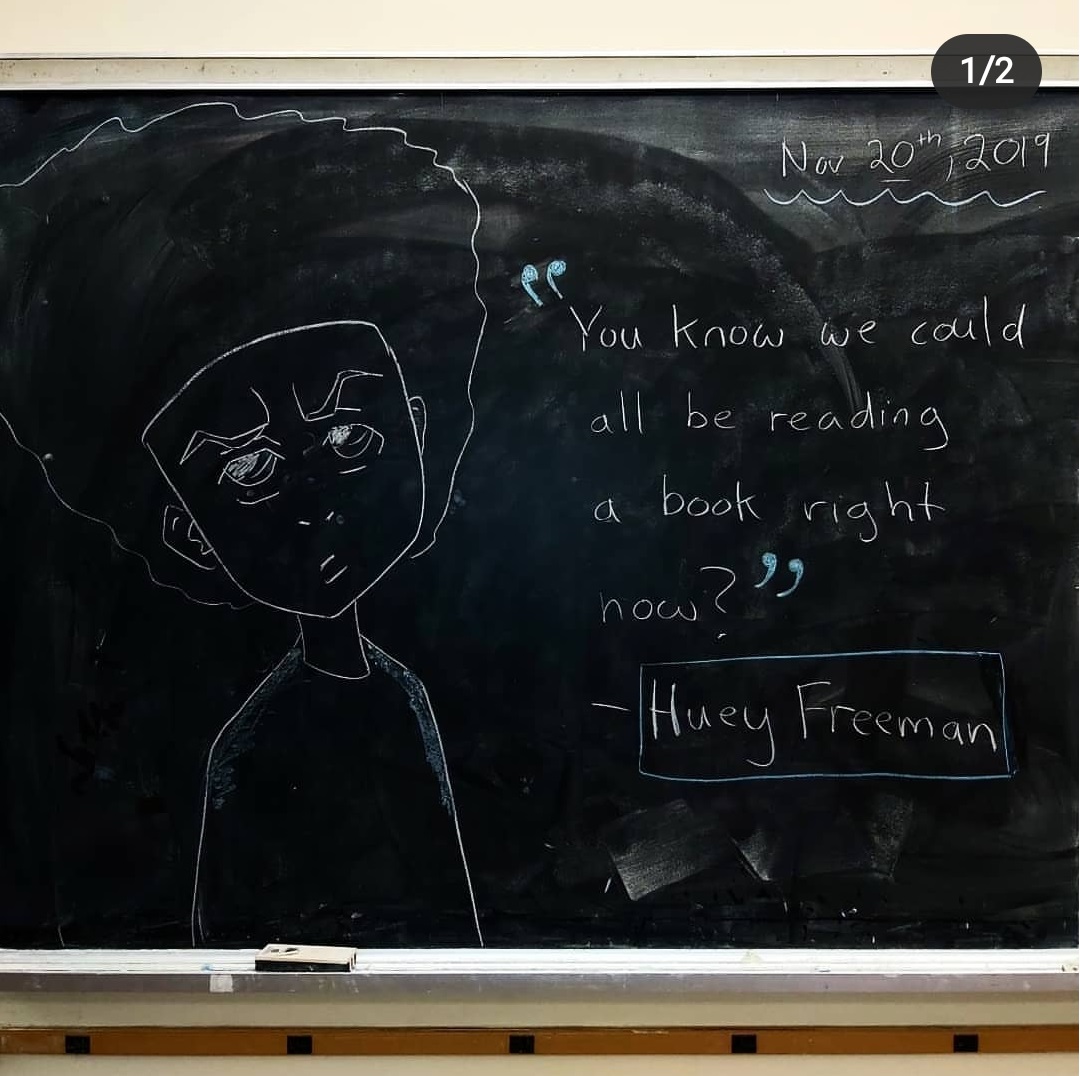 1/2
Nov 20th, 2019
"You know we could
all be reading
a book right
now?"
- Huey Freeman